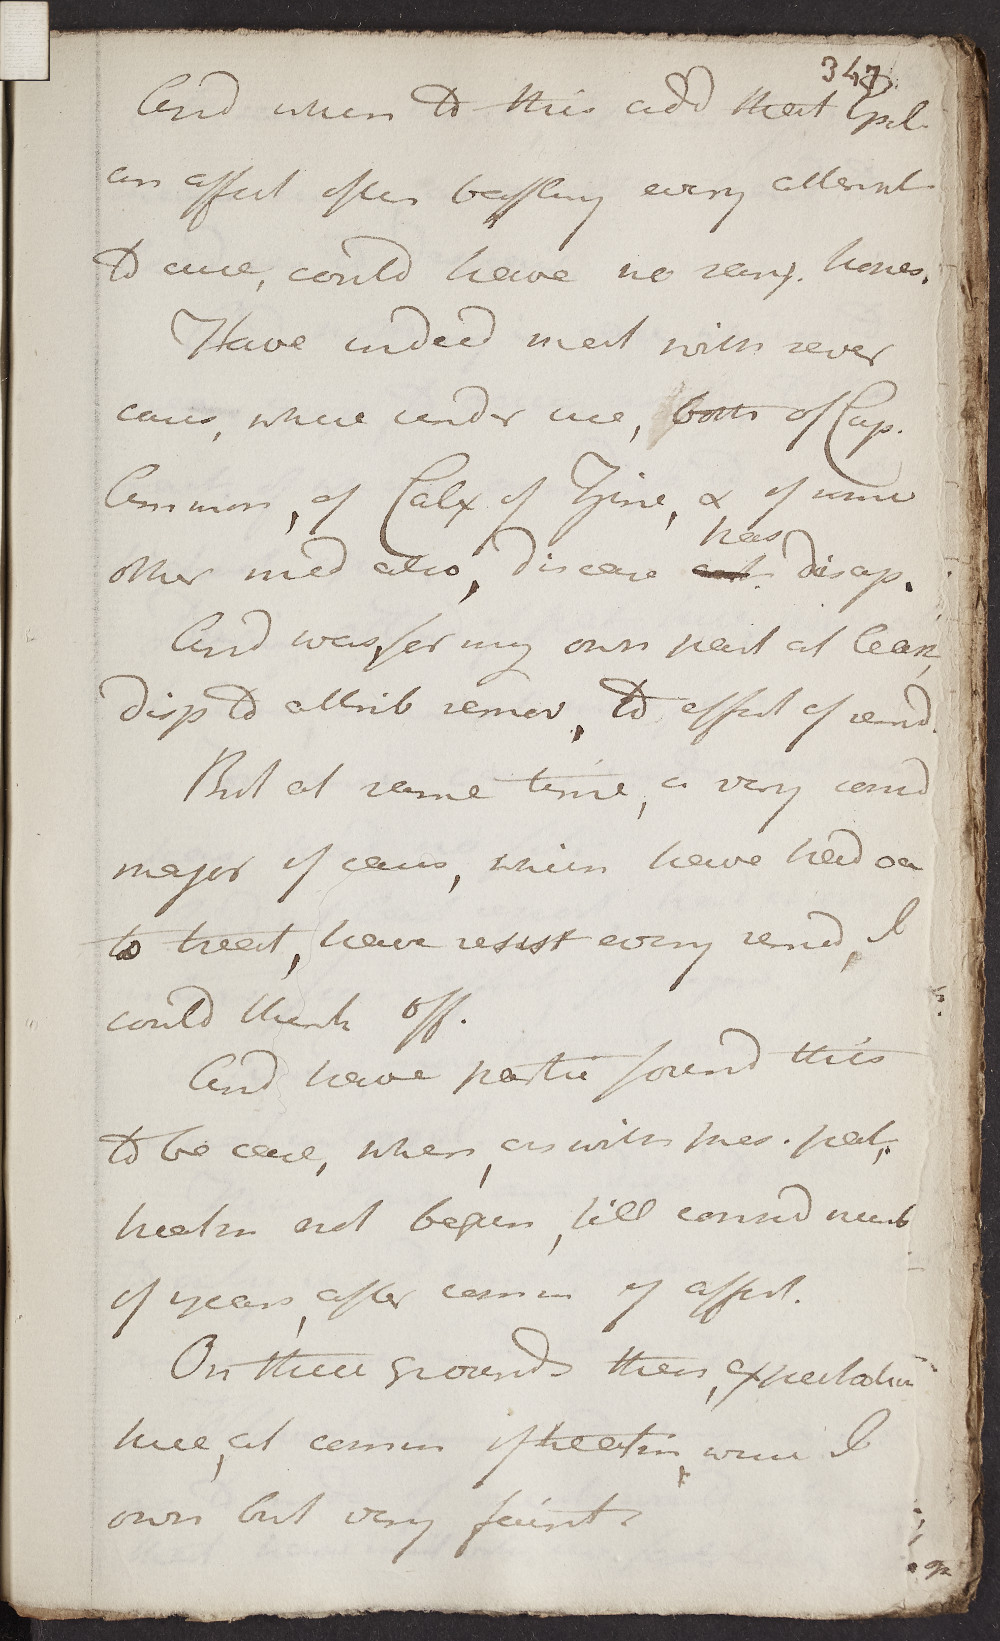 347
And when to this add that Epil.
an affect often baffling every attempt
to cure, could have no sang. hopes.
Have indeed met with sever
cases, where under use, both of Cup.
Ammon, of Calx of Zinc, & of some
has
other med also, disease disap.
And was, for my own part at least,
disp to attrib remov, to effect of remd.
But at same time, a very consid
major of cases, which have had oca
to treat, have resist every remed, I
could think off.
And have partic found this
to be case, when, as with pres. pat,
treatm not begun, till consid numb
of years, after comm of affect.
On these grounds then, expectation
here, at comm of treatm, were I
own but very faint.